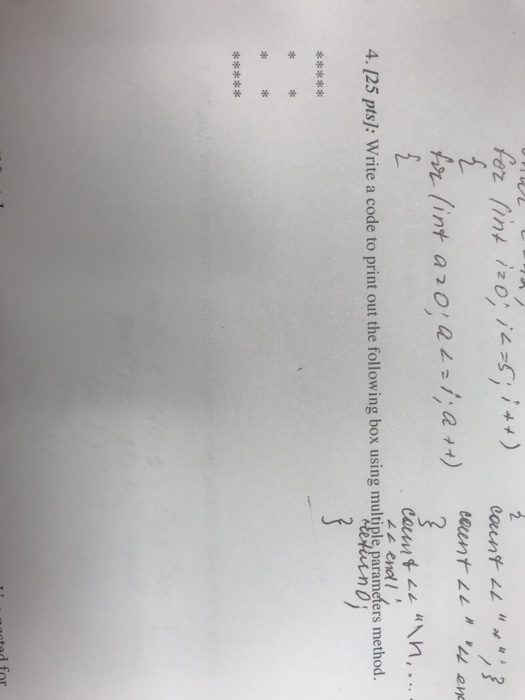 for (int i=0; i<=5; i++)
{
for (int a=0; a<=i; a++)
{
count << "*"; }
count << " " <<
}
count << "\n....
<< endl;
return 0;
}
4. [25 pts]: Write a code to print out the following box using multiple parameters method.
*****
* *
* *
*****